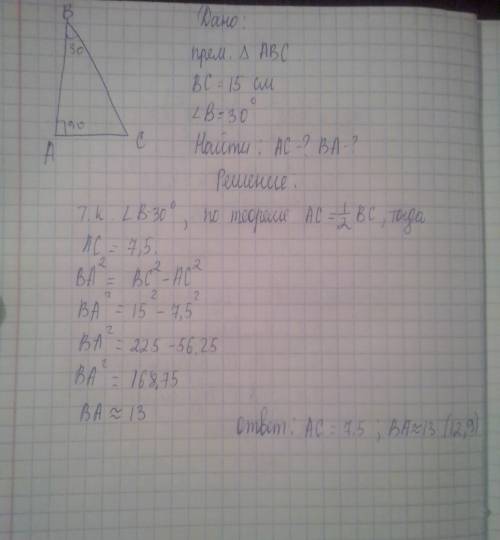 B
30
90
A
C
Дано:
прям. △ ABC
BC = 15 см
∠B = 30°
Найти: AC-? BA-?
Решение:
Т.к. ∠B-30°, по теореме AC = 1/2 BC, тогда
AC = 7,5.
BA² = BC² - AC²
BA² = 15² - 7,5²
BA² = 225 - 56,25
BA² = 168,75
BA ≈ 13
Ответ: AC = 7,5 ; BA ≈ 13 (12,9)